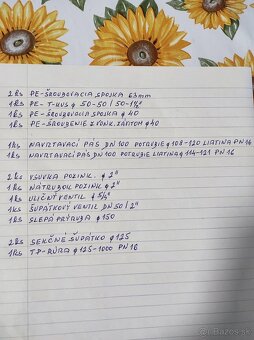 2ks PE-ŠROUBOVACIA SPOJKA 63mm
1ks PE-T-KUS φ 50-50/50-1½"
1ks PE-ŠROUBOVACIA SPOJKA φ 40
1ks PE-ŠROUBENIE Z VONK. ZÁVITOM φ 40
1ks NAVRTAVACÍ PÁS DN 100 POTRUBIE φ 108-120 LIATINA PN 16
1ks NAVRTAVACÍ PÁS DN 100 POTRUBIE LIATINA φ 114-121 PN 16
2ks VSUVKA POZINK. φ 2"
1ks NÁTRUBOK POZINK φ 2"
1ks ULIČNÝ VENTIL φ 5/4"
1ks ŠUPÁTKOVÝ VENTIL DN 50/2"
1ks SLEPÁ PRÍRUBA φ 150
2ks SEKČNÉ ŠUPÁTKO φ 125
1ks TP-RÚRA φ 125-1000 PN 16
bazos.sk